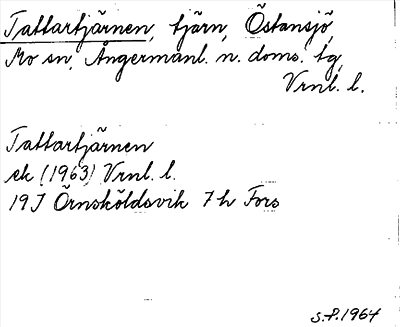 Tattartjärnen, tjärn, Östansjö,
Mo sn, Ångermanl. n. doms. tg,
Vrnl. l.
Tattartjärnen
ek (1963) Vrnl. l.
19J Örnsköldsvik 7 h Fors
S.F. 1964